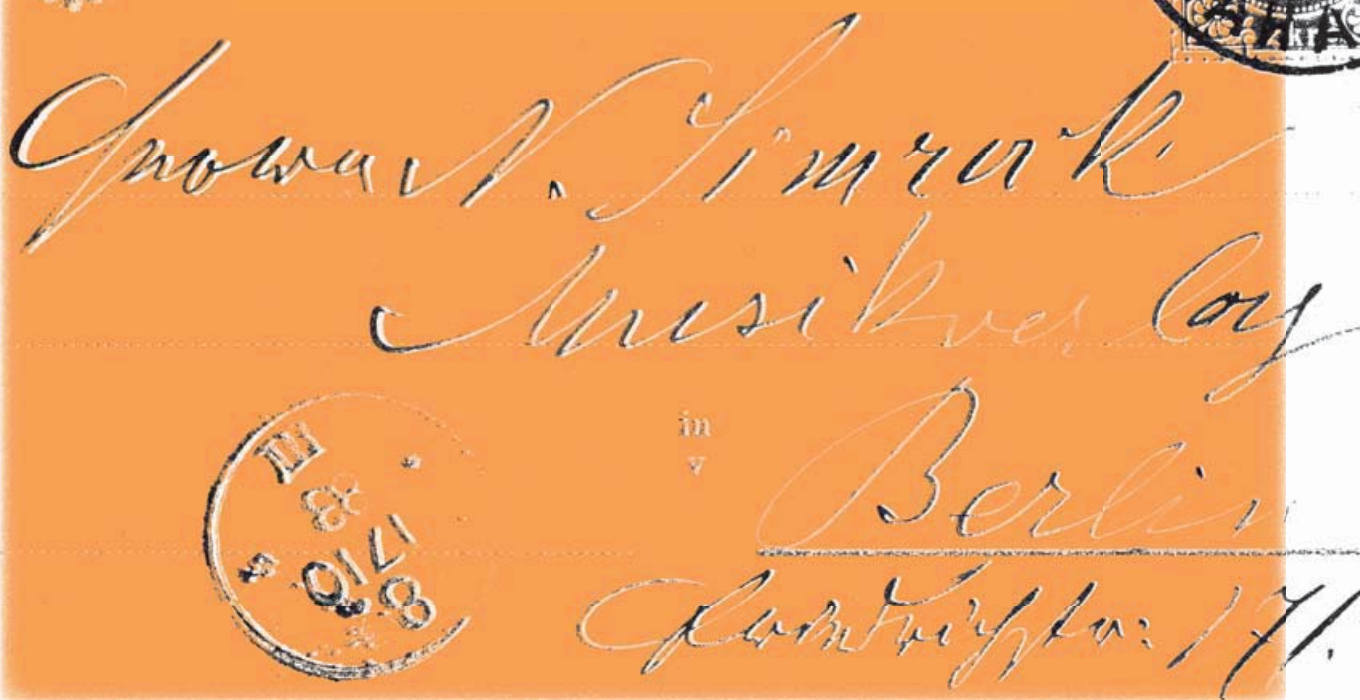 kr.
N. Simrok
Musikverlag
in
Berlin
Friedrichstr: 171.
III
8
17 10
8